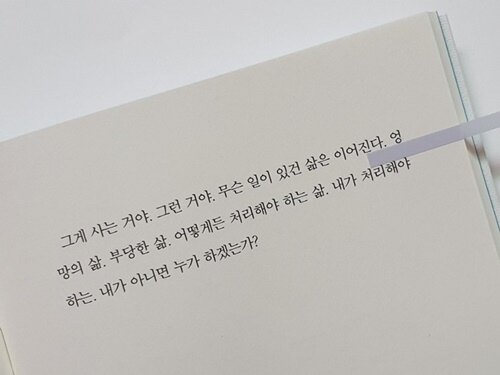 그게 사는 거야. 그런 거야. 무슨 일이 있건 삶은 이어진다. 엉
망의 삶. 부당한 삶. 어떻게든 처리해야 하는 삶. 내가 처리해야
하는. 내가 아니면 누가 하겠는가?